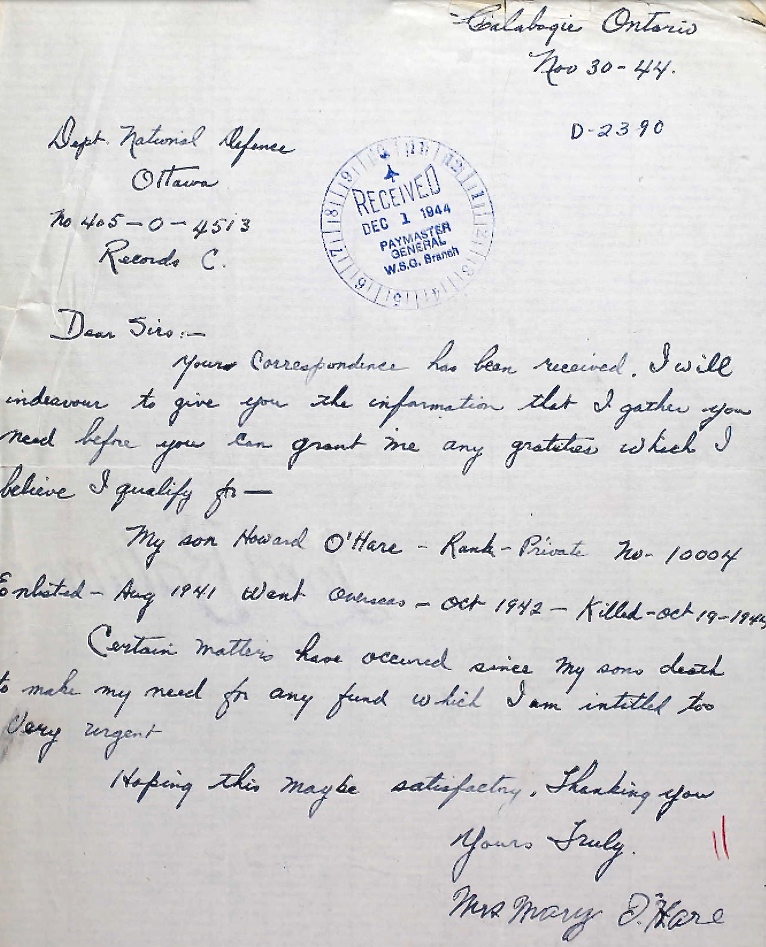 Calabogie Ontario
Nov 30-44.
D-2390
Dept. National Defence
Ottawa
No 405-O-4513
Records C.
RECEIVED
DEC 1 1944
PAYMASTER
GENERAL
W.S.G. Branch
Dear Sirs:-
Yours Correspondence has been received. I will
indeavour to give you the information that I gather you
need before you can grant me any gratities which I
believe I qualify for-
My son Howard O'Hare - Rank - Private No- 10004
Enlisted - Aug 1941 Went Overseas - Oct 1942 - Killed - Oct 19-1944
Certain matters have occured since my sons death
to make my need for any fund which I am intitled too
Very urgent
Hoping this maybe satisfactry. Thanking you
Yours Truly.
Mrs Mary O'Hare